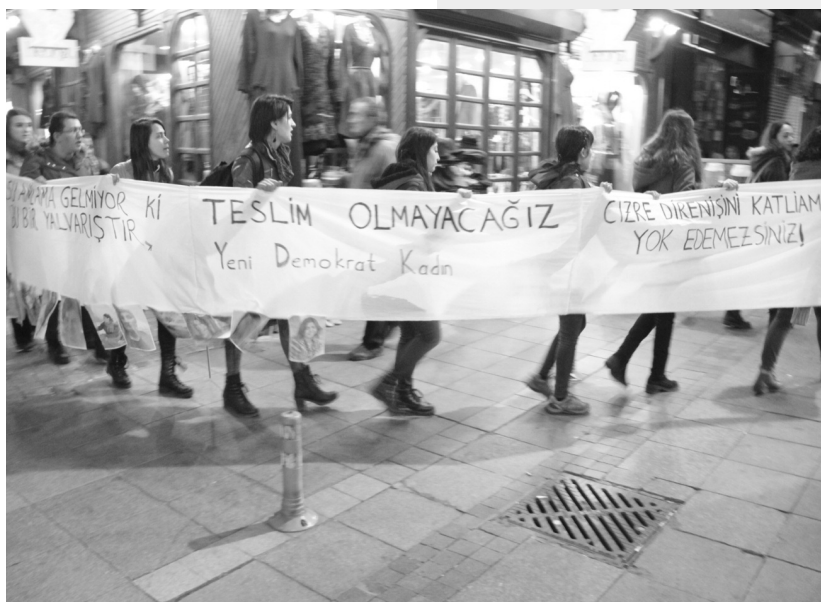 ANLAMA GELMİYOR Kİ
BU BİR YALVARIŞTIR
TESLİM OLMAYACAĞIZ
Yeni Demokrat Kadın
CIZRE DİRENİŞİNİ KATLİAM
YOK EDEMEZSİNİZ!